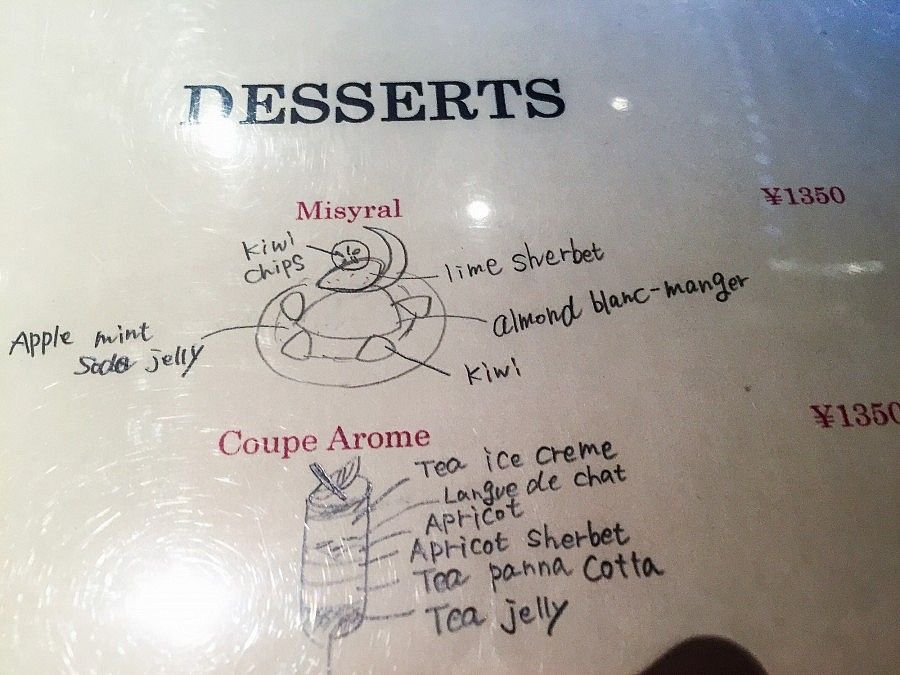 DESSERTS
Misyral ¥1350
Kiwi
chips
lime sherbet
almond blanc-manger
Apple mint
Soda jelly
Kiwi
Coupe Arome ¥1350
Tea ice creme
Langue de chat
Apricot
Apricot sherbet
Tea panna cotta
Tea jelly